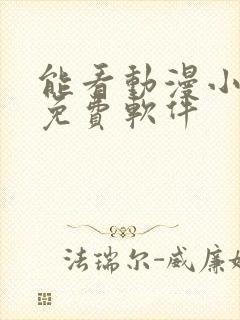 能看動漫小
免費軟件
法瑞尔-威廉姆